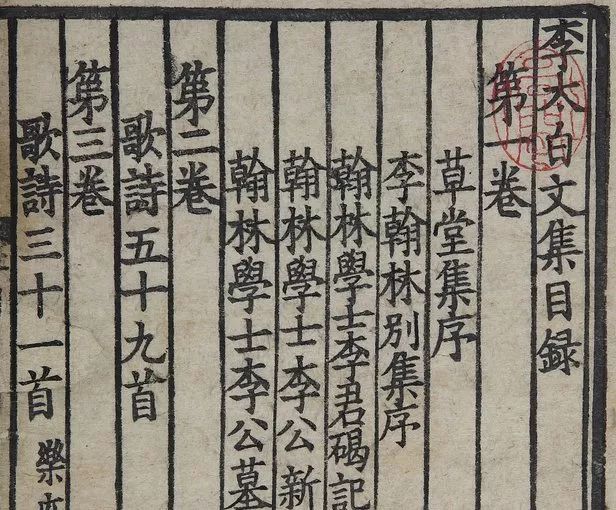 李太白文集目録
第一卷
草堂集序
李翰林別集序
翰林學士李君碣記
翰林學士李公新
翰林學士李公墓
第二卷
歌詩五十九首
第三卷
歌詩三十一首 樂